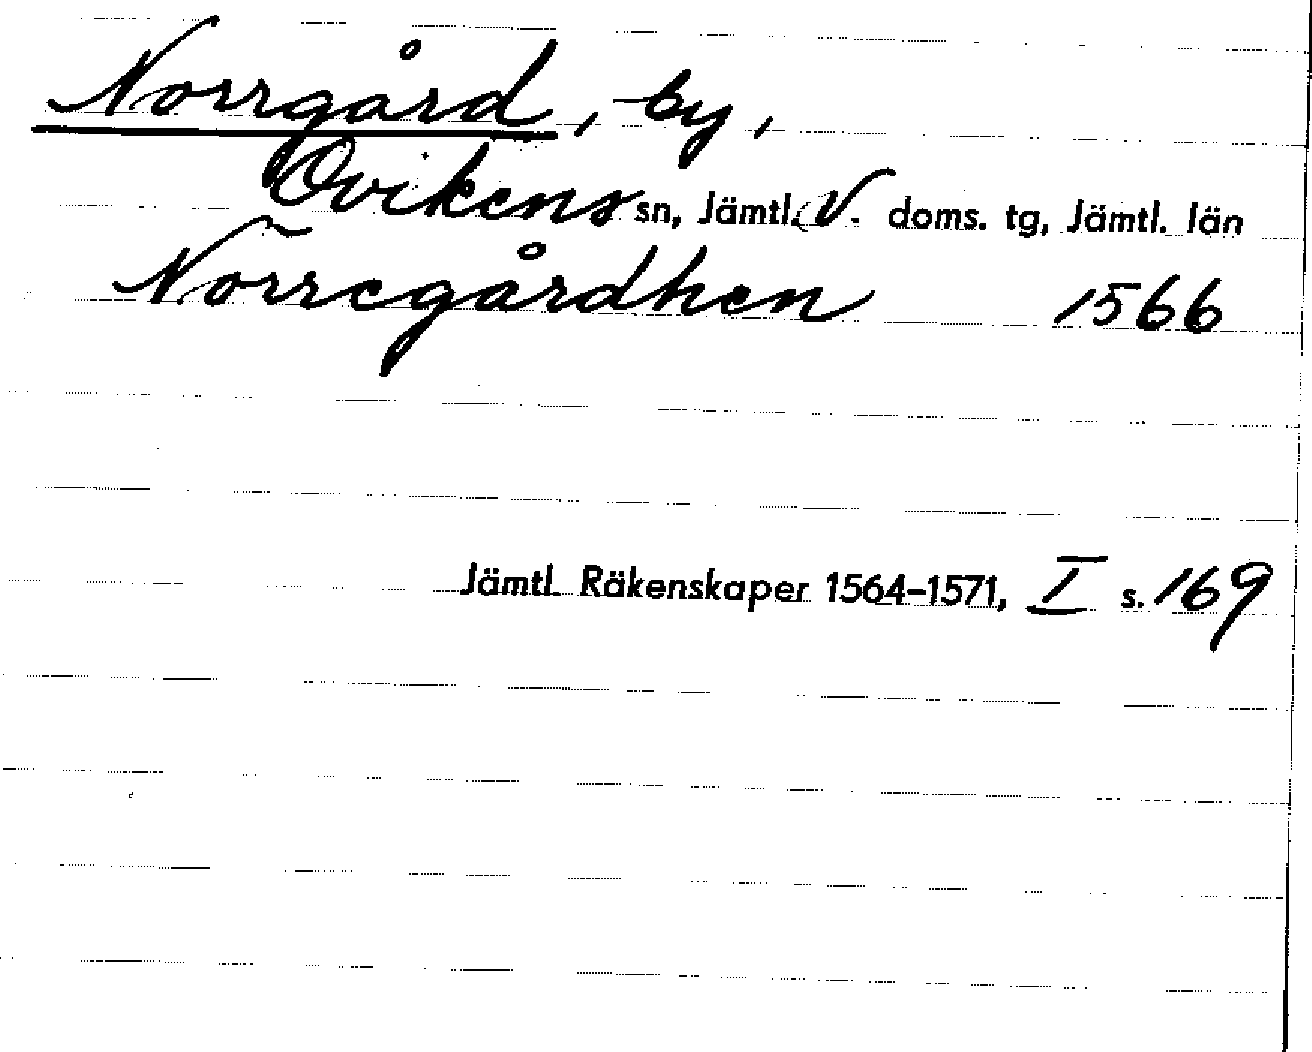 Norrgård, by,
Ovikens sn, Jämtl. V. doms. tg, Jämtl. län
Nõrregårdhen 1566
Jämtl. Räkenskaper 1564-1571, I s. 169